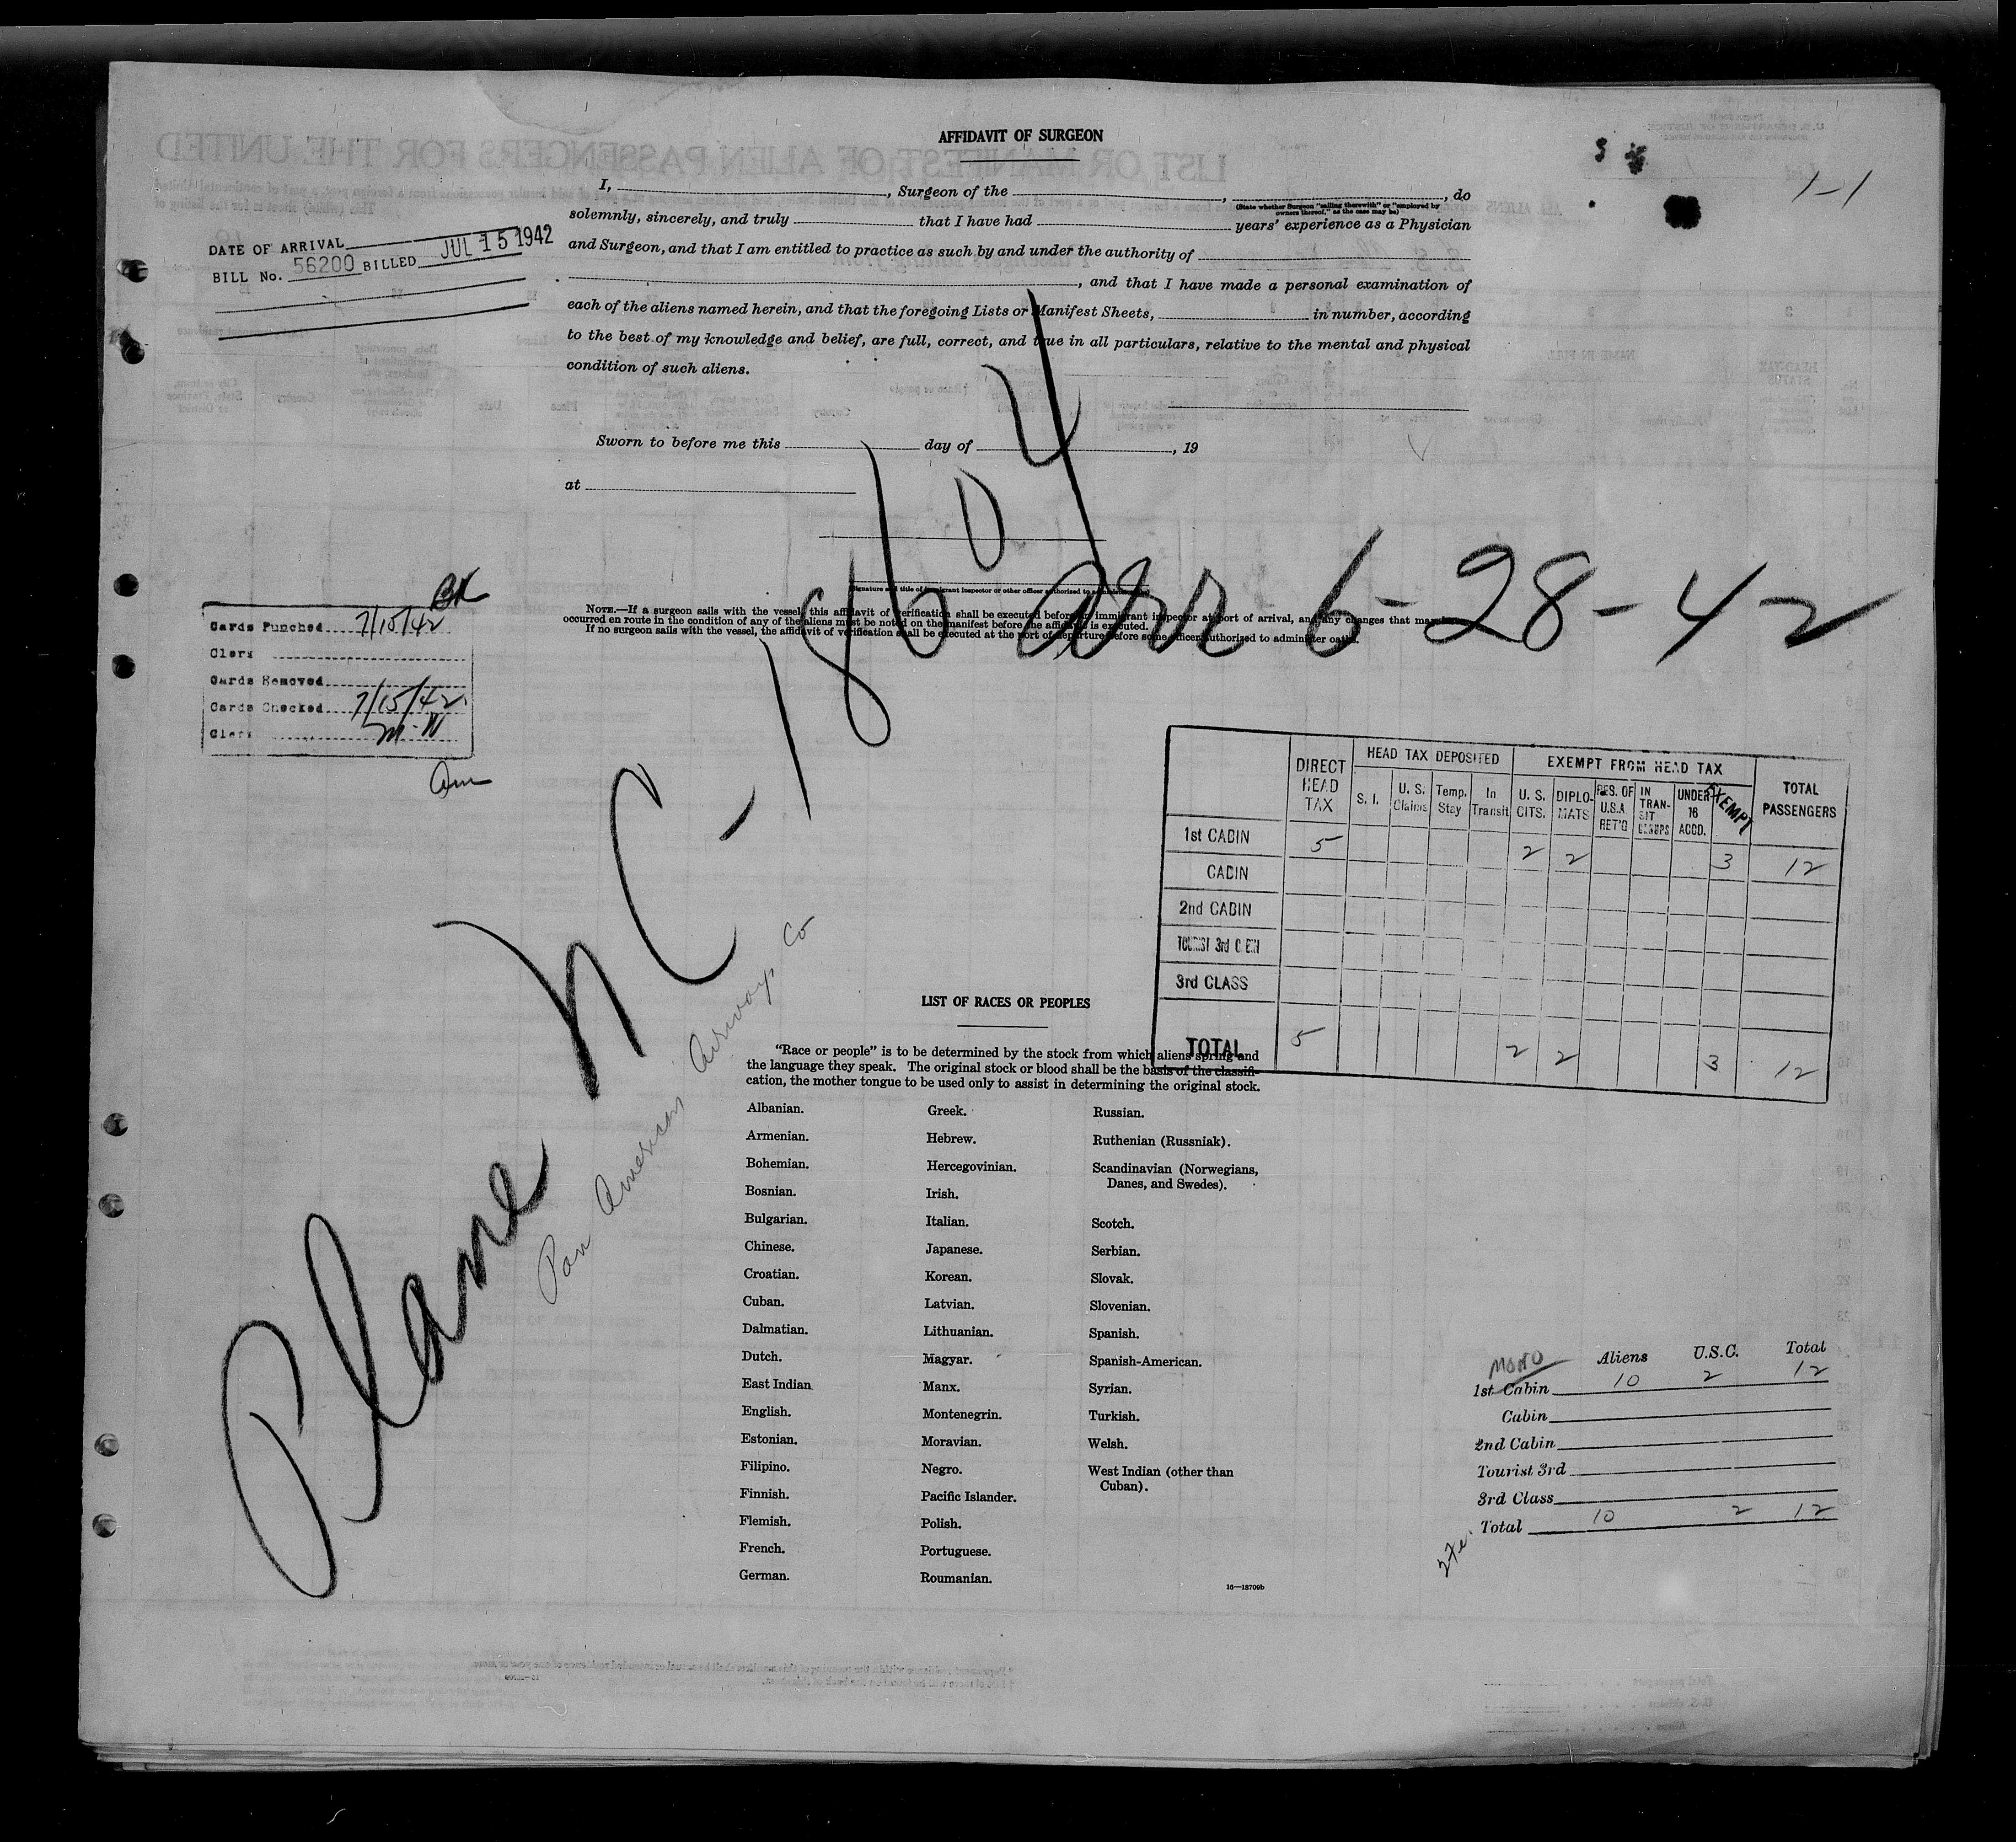 AFFIDAVIT OF SURGEON
1-1
I, , Surgeon of the , , do
(State whether Surgeon "sailing therewith" or "employed by
owners thereof," as the case may be)
solemnly, sincerely, and truly that I have had years' experience as a Physician
and Surgeon, and that I am entitled to practice as such by and under the authority of
, and that I have made a personal examination of
each of the aliens named herein, and that the foregoing Lists or Manifest Sheets, in number, according
to the best of my knowledge and belief, are full, correct, and true in all particulars, relative to the mental and physical
condition of such aliens.
DATE OF ARRIVAL
BILL No. 56200 BILLED JUL 15 1942
Sworn to before me this day of , 19
at
(Signature and title of immigrant inspector or other officer authorized to administer oaths)
NOTE.—If a surgeon sails with the vessel, this affidavit of verification shall be executed before an immigrant inspector at port of arrival, and any changes that may have
occurred en route in the condition of any of the aliens must be noted on the manifest before the affidavit is executed.
If no surgeon sails with the vessel, the affidavit of verification shall be executed at the port of departure before some officer authorized to administer oaths.
BK
Cards Punched 7/15/42
Clerk
Cards Removed
Cards Checked 7/15/42
Clerk M.W
Plane NC-18604
arr 6-28-42
Pan American Airways Co
DIRECT HEAD TAX HEAD TAX DEPOSITED EXEMPT FROM HEAD TAX TOTAL PASSENGERS
S. I. U. S. Claims Temp. Stay In Transit U. S. CITS. DIPLO-MATS RES. OF U.S.A. RET'G IN TRAN-SIT UNDER 16 ACCD. EXEMPT
1st CABIN 5 2 2 3 12
CABIN
2nd CABIN
TOURIST 3rd
3rd CLASS
TOTAL 5 2 2 3 12
LIST OF RACES OR PEOPLES
"Race or people" is to be determined by the stock from which aliens spring and
the language they speak. The original stock or blood shall be the basis of the classifi-
cation, the mother tongue to be used only to assist in determining the original stock.
Albanian.
Armenian.
Bohemian.
Bosnian.
Bulgarian.
Chinese.
Croatian.
Cuban.
Dalmatian.
Dutch.
East Indian
English.
Estonian.
Filipino.
Finnish.
Flemish.
French.
German.
Greek.
Hebrew.
Hercegovinian.
Irish.
Italian.
Japanese.
Korean.
Latvian.
Lithuanian.
Magyar.
Manx.
Montenegrin.
Moravian.
Negro.
Pacific Islander.
Polish.
Portuguese.
Roumanian.
Russian.
Ruthenian (Russniak).
Scandinavian (Norwegians,
Danes, and Swedes).
Scotch.
Serbian.
Slovak.
Slovenian.
Spanish.
Spanish-American.
Syrian.
Turkish.
Welsh.
West Indian (other than
Cuban).
16—18709b
Aliens U.S.C. Total
1st Cabin 10 2 12
Cabin
2nd Cabin
Tourist 3rd
3rd Class
Total 10 2 12